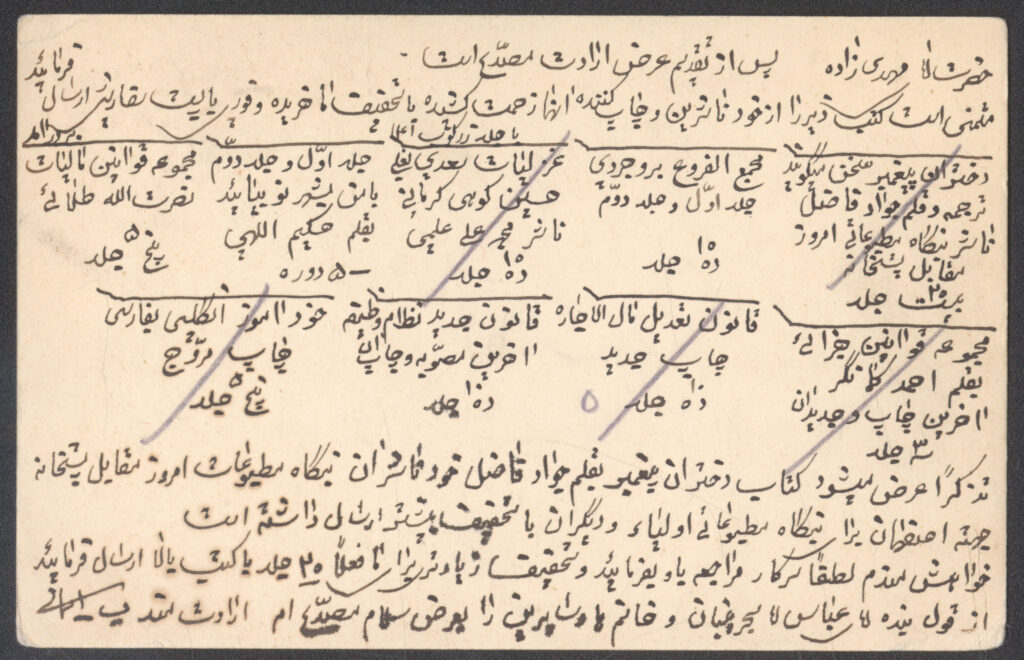 حضرت آقای مهدی زاده پس از تقدیم عرض ارادت مصدّع است
متمنی است کتب زیر را از خود ناشرین و چاپ کننده آنها زحمت کشیده با تخفیفات لازم خریده و فوری بپست سفارشی ارسال فرمائید
دختران پیغمبر سخن میگویند
ترجمه و قلم جواد فاضل
ناشر بنگاه مطبوعاتی امروز
مقابل پستخانه
بیست ۲۰ جلد
مجمع الفروع بروجردی
جلد اوّل و جلد دوّم
ده ۱۰ جلد
غزلیات سعدی بقلم
حسین کوهی کرمانی
ناشر محمد علی علمی
ده ۱۰ جلد
جلد اوّل و جلد دوّم
با متن بشیر نویسانید
بقلم حکیم الهی
۵ دوره
مجموعه قوانین مالیات
نصرت الله طلائی
پنج ۵ جلد
مجموعه قوانین جزائی
بقلم احمد کمانگر
آخرین چاپ و جدیدان
سه جلد
قانون تعدیل مال الاجاره
چاپ جدید
ده ۱۰ جلد
قانون جدید نظام وظیفه
آخرین مصوّبه و چاپ
ده ۱۰ جلد
خودآموز انگلیسی بفارسی
چاپ مروّج
پنج ۵ جلد
تذکراً عرض میشود کتاب دختران پیغمبر بقلم جواد فاضل خود ناشران بنگاه مطبوعات امروز مقابل پستخانه
جهة اصفهان برای بنگاه مطبوعاتی اولیاء و دیگران با تخفیف بیشتر ارسال داشته است
خواهش مندم لطفاً سرکار مراجعه یا و بفرمائید و تخفیفات زیادتری برای ما فعلاً ۲۰ جلد با کتب بالا ارسال فرمائید
از قول بنده آقای عباس آقا و خانم را بعرض سلام مصدّع ام ارادت مند